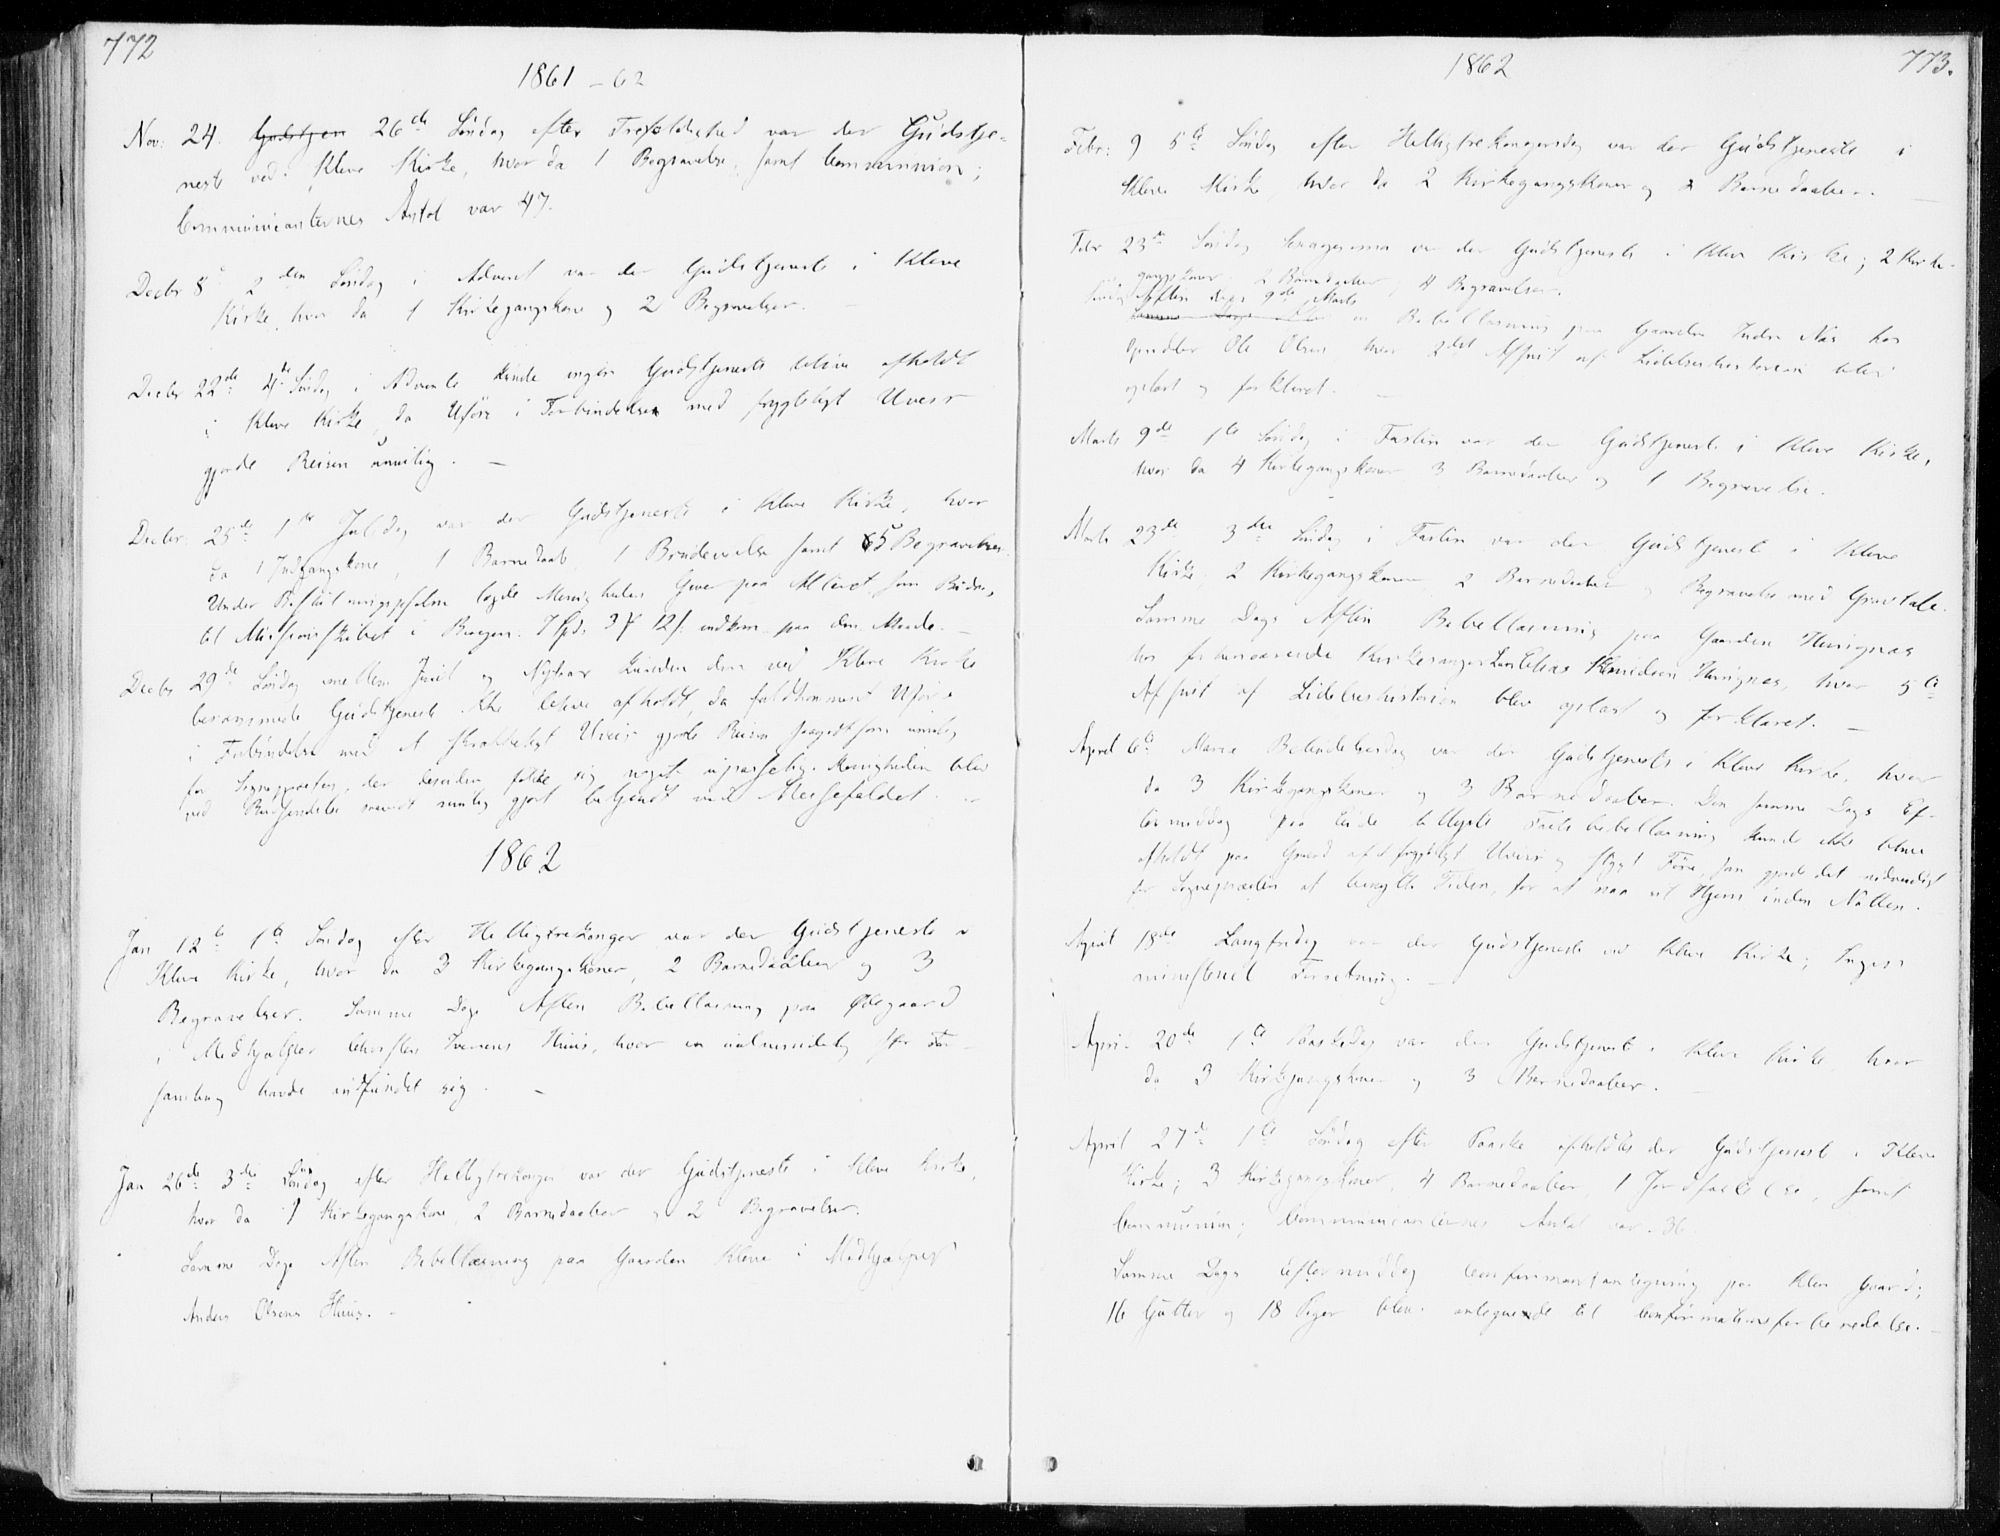 772
1861 - 62
Nov: 24. Gudstjen 26de Søndag efter Trefoldighed var der Gudstje-
neste ved Kleve Kirke, hvor da 1 Begravelse, samt Communion;
Communicanternes Antal var 47.
Decbr 8de 2den Søndag i Advent var der Gudstjeneste i Kleve
Kirke, hvor da 1 Kirkegangskone og 2 Begravelser. —
Decbr 22de 4de Søndag i Advente kunde ingen Gudstjeneste blive afholdt
i Kleve Kirke, da Uføre i Forbindelse med frygteligt Uveir
gjorde Reisen umulig. —
Decbr. 25de 1ste Juledag var der Gudstjeneste i Kleve Kirke, hvor
da 1 Indgangskone, 1 Barnedaab, 1 Brudevielse samt 5 Begravelser.
Under lagde Menigheden Gaver paa Alteret som Bidrag
til Missionsskibet i Bergen. 7 Spd. 3 12 s. indkom paa den Maade. —
Decbr 29de Søndag mellem Juul og Nytaar kunde den ved Kleve Kirke
berammede Gudstjeneste ikke blive afholdt, da fuldkomment Uføre
i Forbindelse med et skrækkeligt Uveir gjorde Reisen saagodtsom umulig
for Sognepræsten, der desuden følte sig noget upasselig. Menigheden blev
ved gjort bekjendt med Messefaldet. —
1862
Jan 12te 1ste Søndag efter Helligtrekonger var der Gudstjeneste i
Kleve Kirke, hvor da 3 Kirkegangskoner, 2 Barnedaaber og 3
Begravelser. Samme Dags Aften Bibellæsning paa Ødegaard
i Medhjælper Christen Iversens Huus, hvor en ualmindelig stor For-
samling havde indfundet sig. —
Jan 26de 3die Søndag efter Helligtrekonger var der Gudstjeneste i Kleve Kirke,
hvor da 1 Kirkegangskone, 2 Barnedaaber og 2 Begravelser.
Samme Dags Aften Bibellæsning paa Gaarden Kleve i Medhjælper
Anders Olsens Huus. —
1862
773.
Febr: 9 5te Søndag efter Helligtrekongersdag var der Gudstjeneste i
Kleve Kirke, hvor da 2 Kirkegangskoner og 2 Barnedaaber. —
Febr 23de Søndag Sexagesima var der Gudstjeneste i Kleve Kirke; 2 Kirke-
gangskoner, 2 Barnedaaber, 4 Begravelser.
Søndag Aften den 9de Marts
Samme Dags Aften en Bibellæsning paa Gaarden Indre Næs hos
Ole Olsen hvor 2det Afsnit af Lidelseshistorien blev
oplæst og forklaret. —
Marts 9de 1ste Søndag i Fasten var der Gudstjeneste i Kleve Kirke,
hvor da 4 Kirkegangskoner 3 Barnedaaber og 1 Begravelse.
Marts 23de 3die Søndag i Fasten var der Gudstjeneste i Kleve
Kirke. 2 Kirkegangskoner 2 Barnedaaber og Begravelse med Gravtale.
Samme Dags Aften Bibellæsning paa Gaarden
hos forhenværende Kirkesanger , hvor 5te
Afsnit af Lidelseshistorien blev oplæst og forklaret. —
April 6te Mariæ Bebudelsesdag var der Gudstjeneste i Kleve Kirke, hvor
da 3 Kirkegangskoner og 3 Barnedaaber. Den samme Dags Ef-
termiddag paa bibellæsning kunde ikke blive
afholdt paa Grund af et frygteligt Uveir og stygt Føre, som gjorde det nødvendigt
for Sognepræsten at benytte Tiden, for at naa sit Hjem inden Natten.
April 18de Langfredag var der Gudstjeneste ved Kleve Kirke; Ingen
ministeriel Forretning. —
April 20de 1ste Paaskedag var der Gudstjeneste i Kleve Kirke hvor
da 3 Kirkegangskoner og 3 Barnedaaber.
April 27de 1ste Søndag efter Paaske afholdtes der Gudstjeneste i Kleve
Kirke; 3 Kirkegangskoner, 4 Barnedaaber, 1 Jordfæstelse, samt
Communion; Communicanternes Antal var 36.
Samme Dags Eftermiddag Confirmantantegning paa Kleve Gaard;
16 Gutter og 18 Piger blev antegnede til Confirmationsforberedelse. —